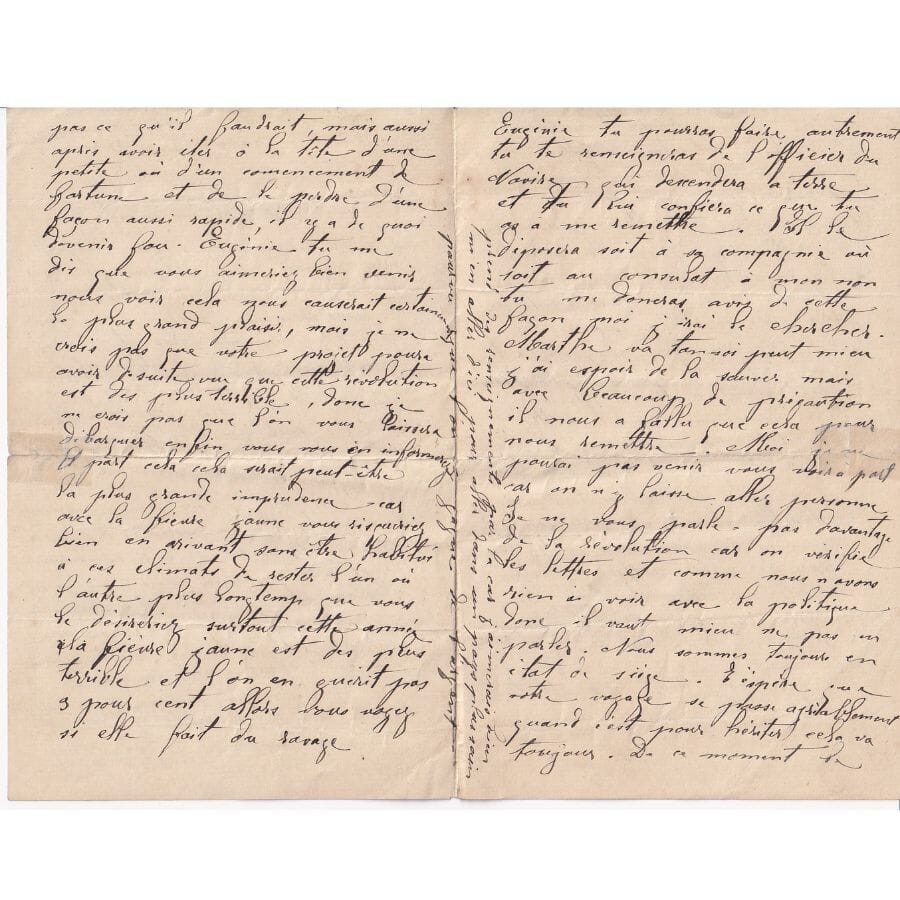 pas ce qu'il faudrait, mais aussi
apris avoir iter à la tête d'une
petite ou d'un comencement de
fortune et de le perdre d'une
façon aussi rapide, il y a de quoi
devenir fou. Eugénie tu me
dis que vous aimeriez bien venir
nous voir cela nous causerait
le plus grand plaisir, mais je ne
crois pas que votre projet pourra
avoir de suite vu que cette révolution
est des plus terrible, donc je
ne crois pas que l'on vous laissera
débarquer enfin vous nous en informerez
Et part cela cela serait peut-être
la plus grande imprudence car
avec la fièvre jaune vous risqueriez
bien en arivant sans être habitué
à ces climats de rester l'un ou
l'autre plus longtemp que vous
le désireriez surtout cette année
la fièvre jaune est des plus
terrible et l'on en guérit pas
3 pour cent allors vous voyez
si elle fait du ravage
pourvu que l'on gagne de l'argent
prend des renseignements par la car j'aimerais bien
m'en aller d'ici pour aller dans un pays plus sain
Eugénie tu pourras faire autrement
tu te renseigneras de l'officier du
Navire qui descendera a terre
et tu lui confiera ce que tu
as a me remettre. Il le
déposera soit à sa compagnie où
soit au consulat à mon non
tu me doneras avis de cette
façon moi j'irai le chercher.
Marthe va tansoi peut mieu
j'ai espoir de la sauver mais
avec beaucoup de précaution
il nous a fallu que cela pour
nous remettre. Moi je ne
pourai pas venir vous voir a part
car on n'y laisse aller personne
Je ne vous parle pas davantage
de la révolution car on vérifie
les lettres et comme nous n'avons
rien a voir avec la politique
donc il vaut mieu ne pas en
parler. Nous sommes toujours en
état de siège. J'éspère que
votre voyage se passe agréablement
quand c'est pour hériter cela va
toujour. De ce moment le